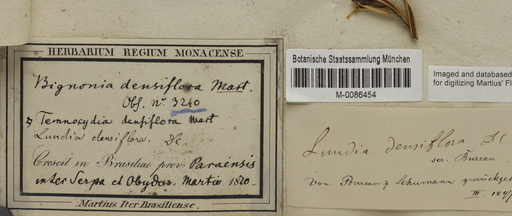 HERBARIUM REGIUM MONACENSE
Bignonia densiflora Mart.
Obs. nº 3240
Temnocydia densiflora Mart
Lundia densiflora. Dc.
Crescit in Brasiliae prov. Paraensis
inter Serpa et Obydos. Martio 1820.
Martius Iter Brasiliense.
Botanische Staatssammlung München
M-0086454
Imaged and databased
for digitizing Martius' Fl
Lundia densiflora DC
Bureau
von Bureau & Schumann zurückge
III. 189